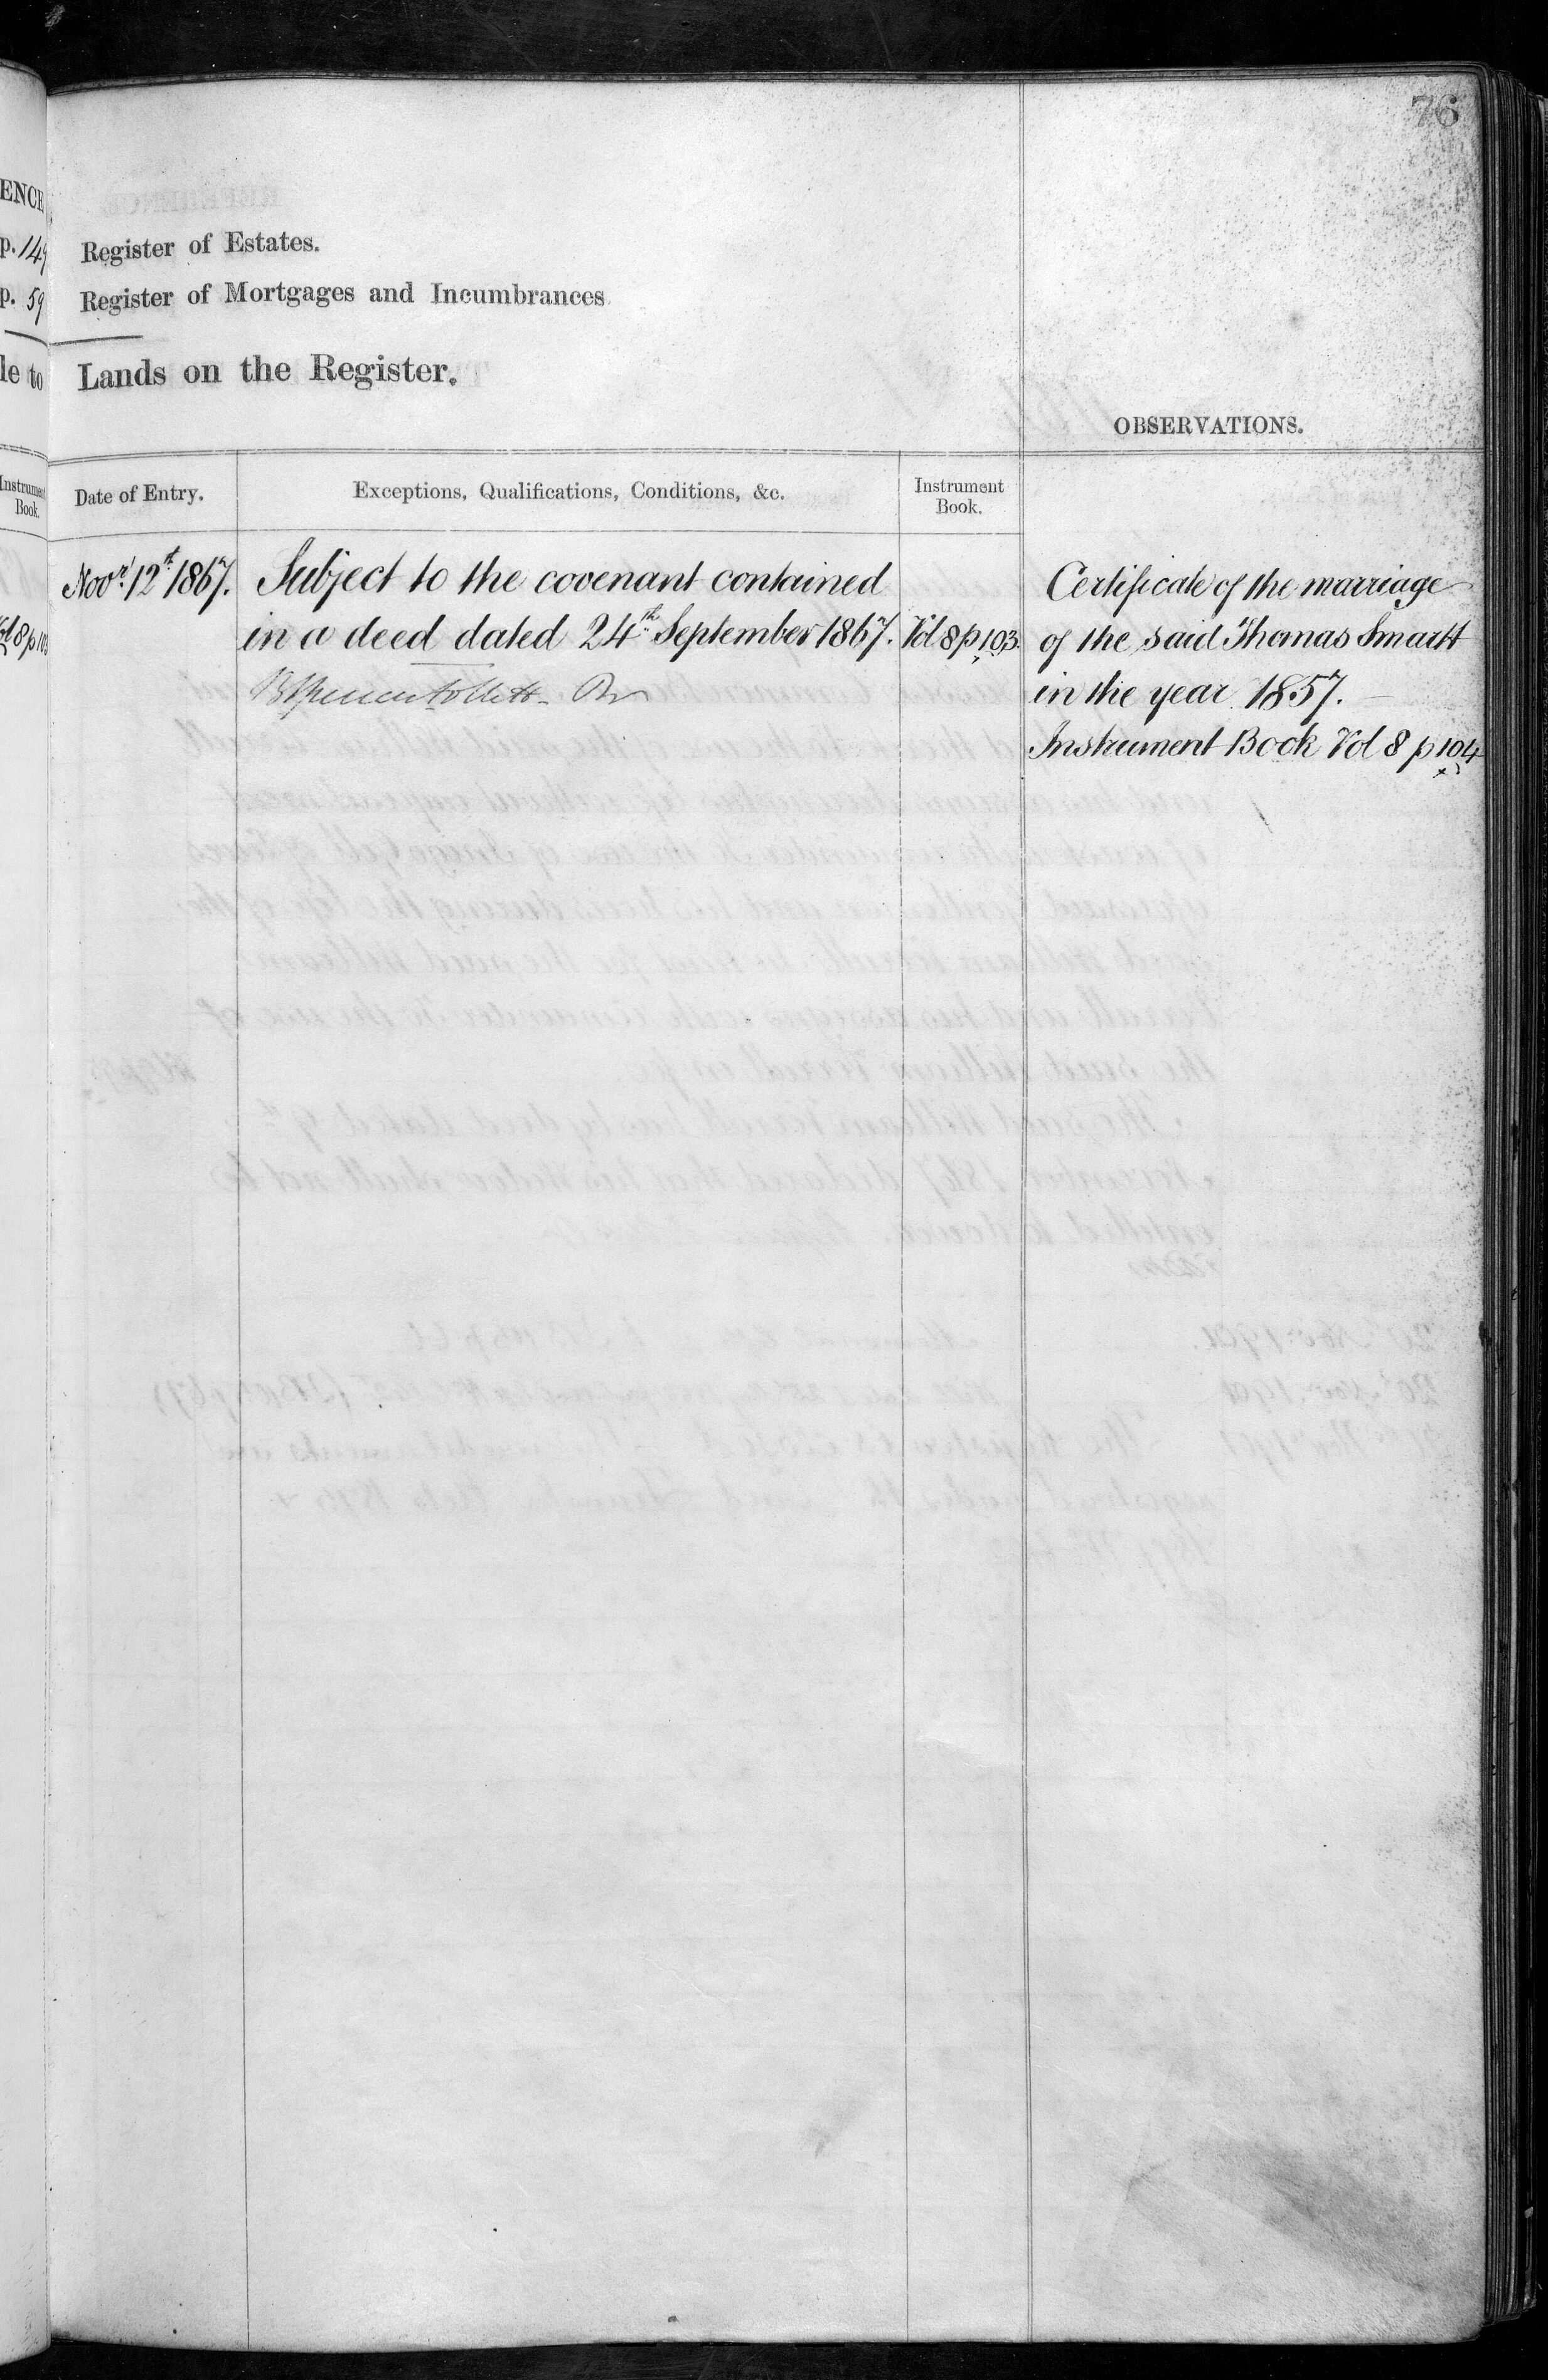 76
ENCE
p. 149
p. 59
le to
Instrument
Book.
Vol 8 p 103
Register of Estates.
Register of Mortgages and Incumbrances
Lands on the Register.
OBSERVATIONS.
Date of Entry.
Exceptions, Qualifications, Conditions, &c.
Instrument
Book.
Novr. 12th 1867.
Subject to the covenant contained
in a deed dated 24th September 1867. Vol 8 p 103.
Certificate of the marriage
of the said Thomas Smartt
in the year 1857.
Instrument Book Vol 8 p 104